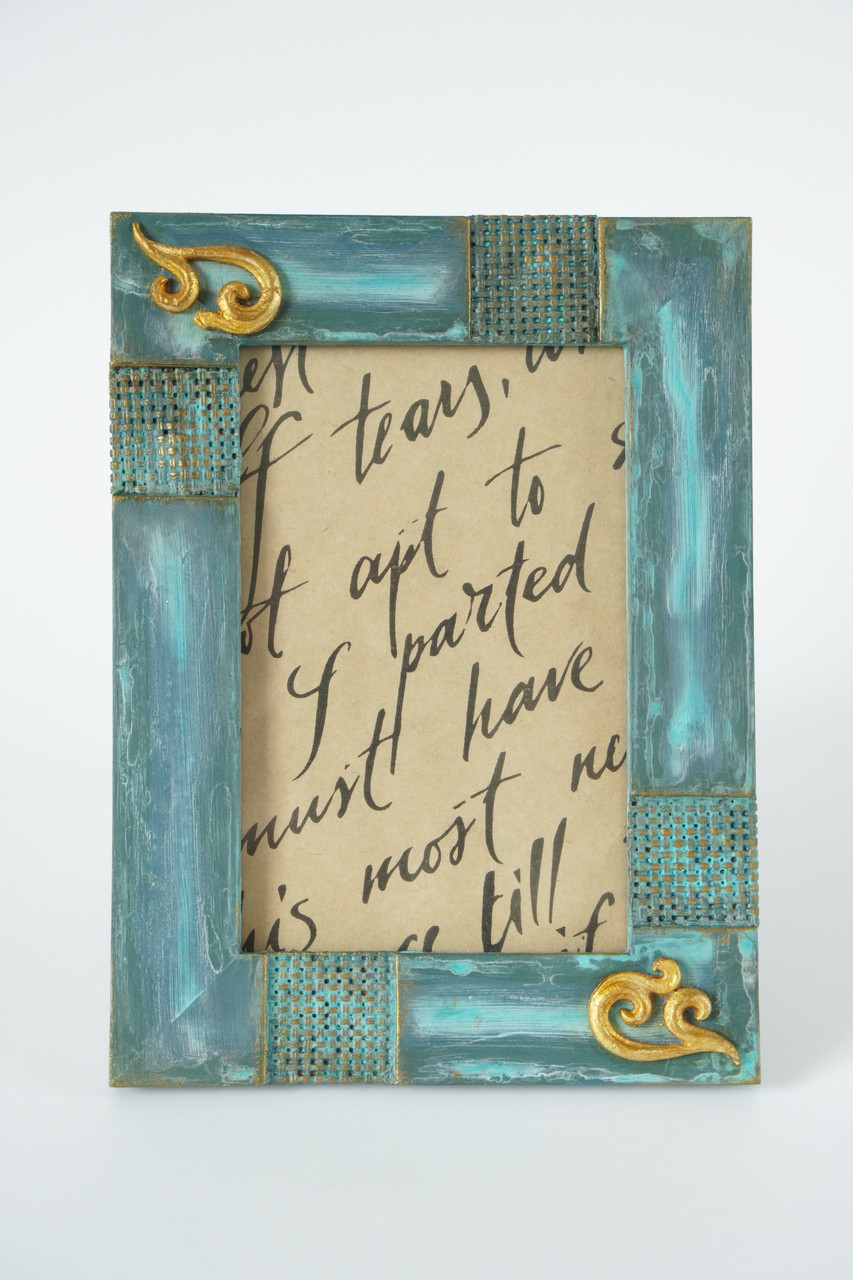 of tears,
apt to
I parted
must have
his most
till
if